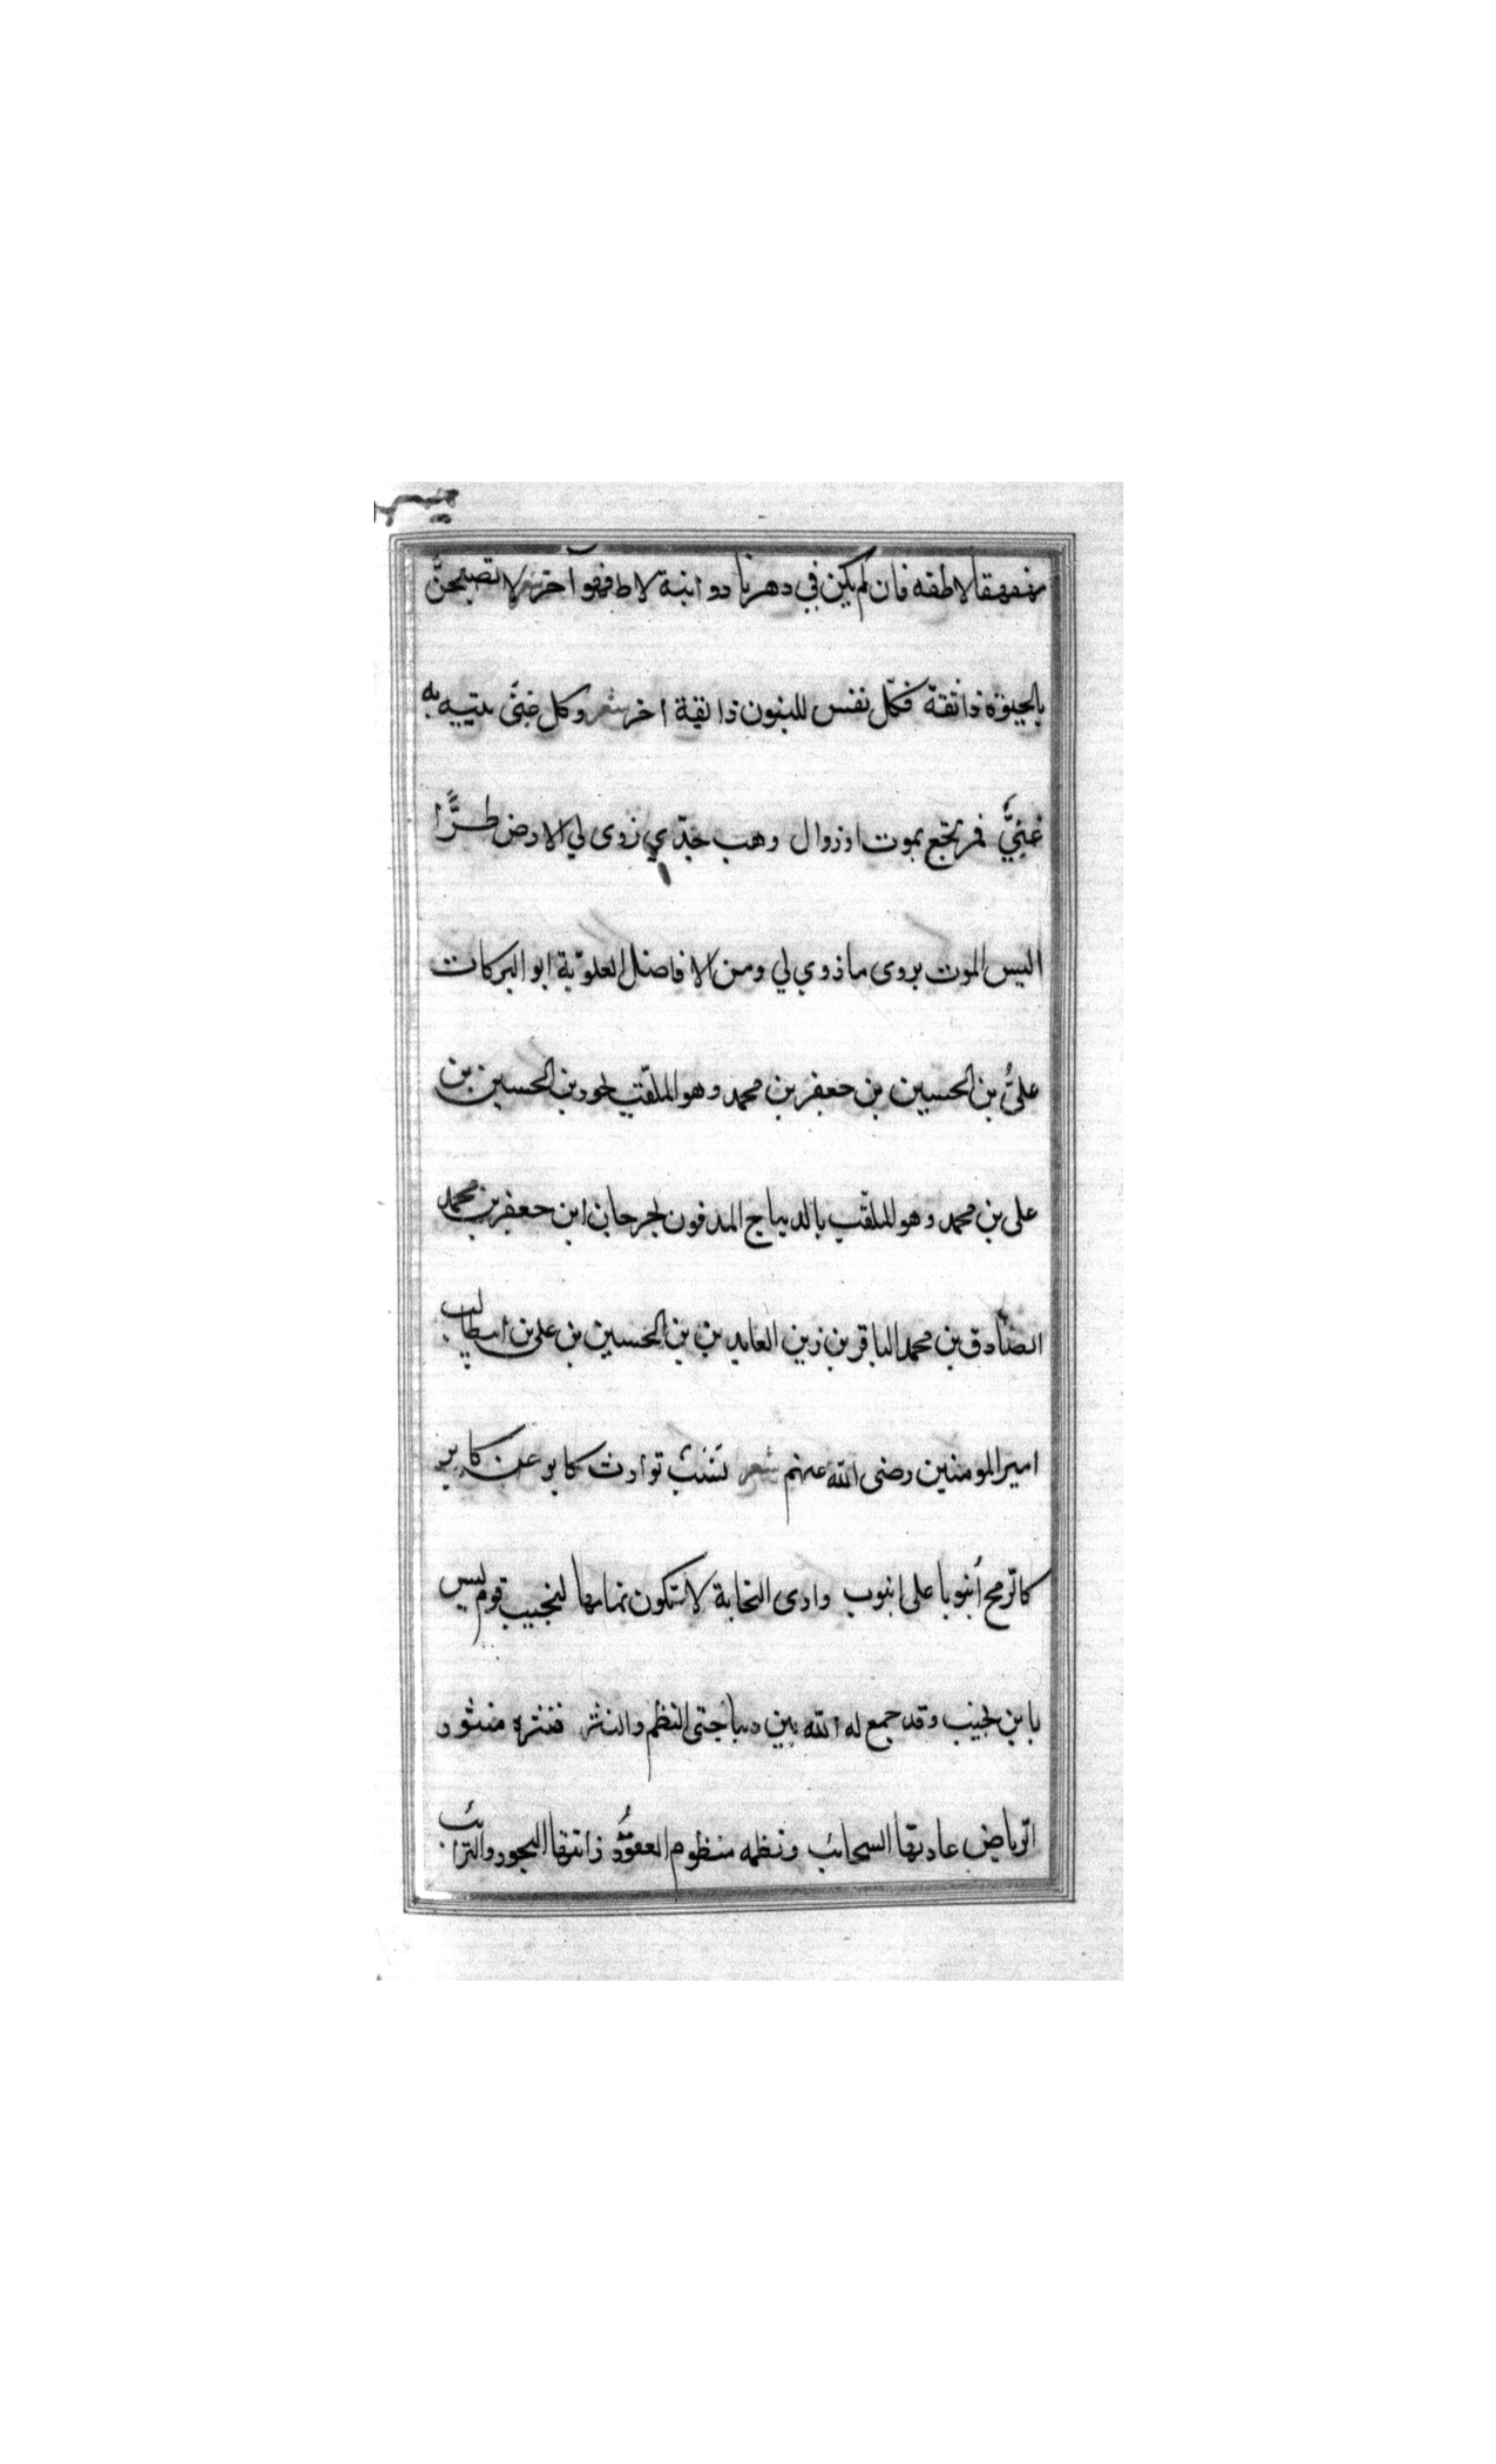 مهفهفا لاطفه فان لم يكن في دهرنا ذو ابنة لاط فهو آخر شعر لا تصبحن
بالحيوة ذائقة فكل نفس للمنون ذائقة اخر شعر وكل غنى يتيه به
غنيّ فمرتجع بموت او زوال وهب جدّي زوى لي الارض طرًّا
اليس الموت يزوى ما زوي لي ومن الافاضل العلوّية ابو البركات
عليُّ بن الحسين بن جعفر بن محمد وهو الملقّب بن الحسين بن
على بن محمد وهو الملقّب بالديباج المدفون بجرجان ابن جعفر بن محمد
الصّادق بن محمد الباقر بن زين العابدين بن الحسين بن على بن ابيطالب
امير المومنين رضى الله عنهم شعر نسَبٌ توارث كابر عن كابرٍ
كالرّمح أنبوبا على انبوب وارى النجابة لا تكون تمامها لنجيب قوم ليس
بابن نجيب وقد جمع له الله بين ديباجتى النظم والنثر فنثره منثور
الرّياض عادتها السحائب ونظمه منظوم العقوُد زانتها النحور والترائب